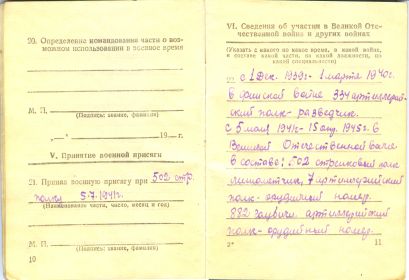 20. Определение командования части о воз-
можном использовании в военное время
М. П.
(Подпись: звание, фамилия)
„ “ 19 г.
V. Принятие военной присяги
21. Принял военную присягу при 502 стр.
полку 5.7.1941г.
(Наименование части, число, месяц и год)
М. П.
(Подпись: звание, фамилия)
10
VI. Сведения об участии в Великой Оте-
чественной войне и других войнах
(Указать с какого по какое время, в какой войне,
в составе какой части, по какой должности, по
какой специальности)
с 1 Дек. 1939г. - 1 марта 1940г.
В финской войне 334 артиллерий-
ский полк - разведчик.
с 5 июля 1941г - 15 апр. 1945г. в
Великой Отечественной войне
в составе: 502 стрелковый полк
7 артиллерийский
полк - орудийный номер.
882 артиллерийский
полк - орудийный номер.
2*
11